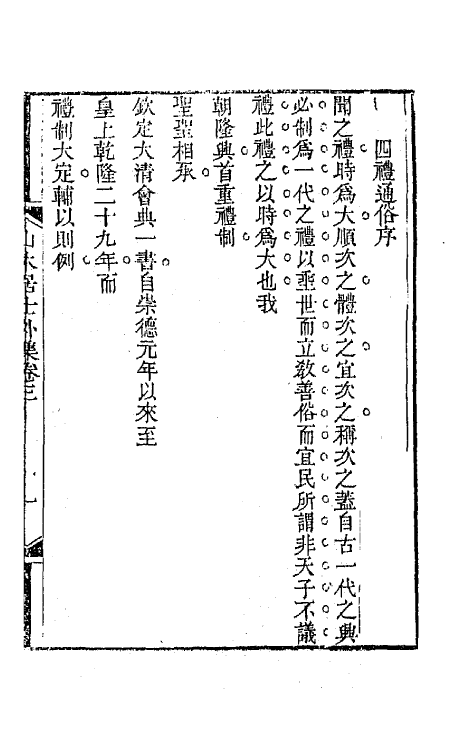 四禮通俗序
聞之禮時爲大順次之體次之宜次之稱次之蓋自古一代之興
必制爲一代之禮以垂世而立敎善俗而宜民所謂非天子不議
禮此禮之以時爲大也我
朝隆興首重禮制
聖聖相承
欽定大清會典一書自崇德元年以來至
皇上乾隆二十九年而
禮制大定輔以則例
山木居士外集卷三